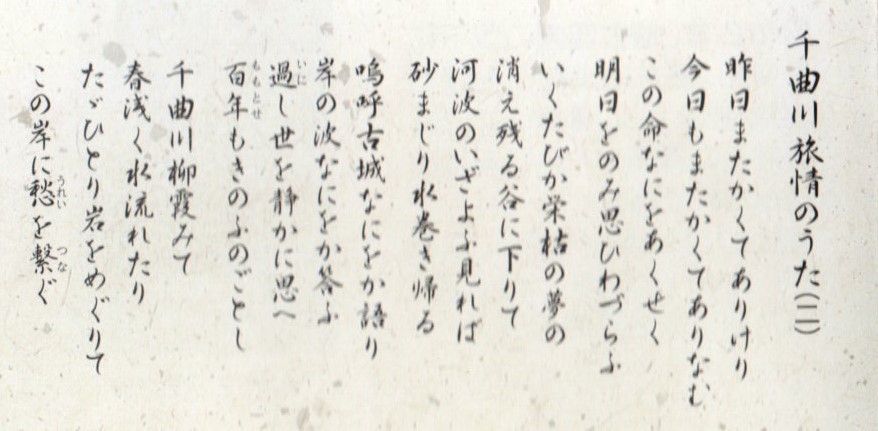 千曲川旅情のうた(二)
昨日またかくてありけり
今日もまたかくてありなむ
この命なにをあくせく
明日をのみ思ひわづらふ
いくたびか栄枯の夢の
消え残る谷に下りて
河波のいざよふ見れば
砂まじり水巻き帰る
嗚呼古城なにをか語り
岸の波なにをか答ふ
過し世を静かに思へ
いに
百年もきのふのごとし
ももとせ
千曲川柳霞みて
春浅く水流れたり
たゞひとり岩をめぐりて
この岸に愁を繋ぐ
うれい
つな